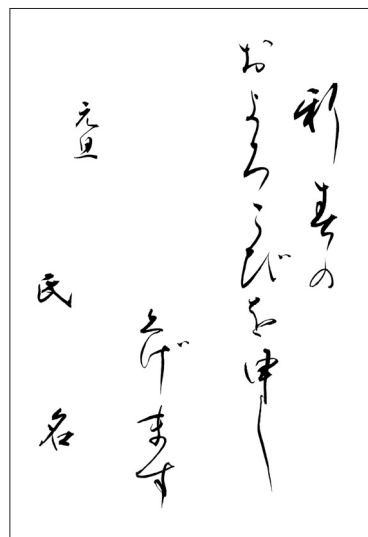 新春の
およろこびを申し
上げます
元旦
氏名